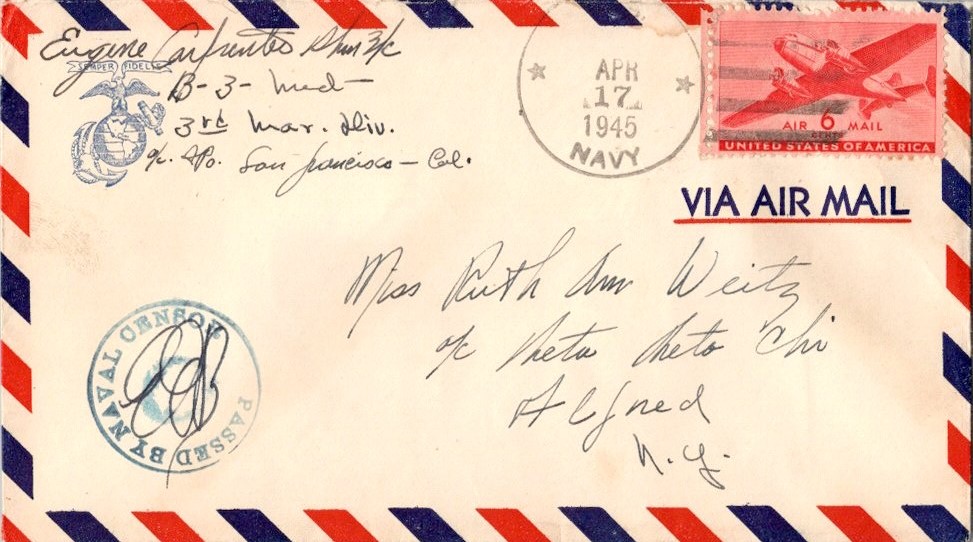 Eugene Carfrentes Phm 3/c
SEMPER FIDELIS
B-3-Med
3rd Mar. Div.
c/o. FPo. San Francisco - Cal.
APR
17
1945
NAVY
AIR 6 MAIL
CENTS
UNITED STATES OF AMERICA
VIA AIR MAIL
Miss Ruth Ann Weitz
c/o Theta Theta Chi
Alfred
N.Y.
PASSED BY NAVAL CENSOR